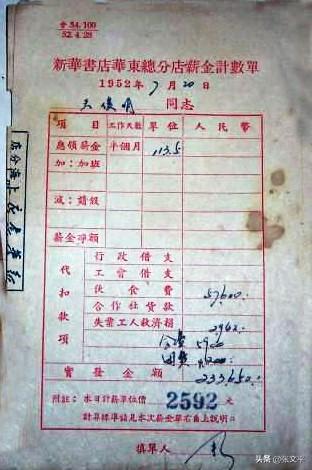 會 54/100
52.4.28
新華書店華東總分店薪金計數單
1952年7月20日
同志
項目 工作天數 單位 人民幣
應領薪金 半個月 113.5
加：加班
減：請假
薪金淨額
代扣款項
行政借支
工會借支
伙食費 57600.-
合作社貨款
失業工人救濟捐 2942.-
實發金額 233,650.-
附註：本日計薪單位價 2592 元
計算標準請見本次薪金單右角上說明
填單人
新華書店上海分店
头条 @张文平